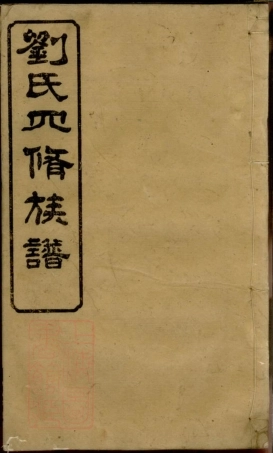 劉氏四脩族譜